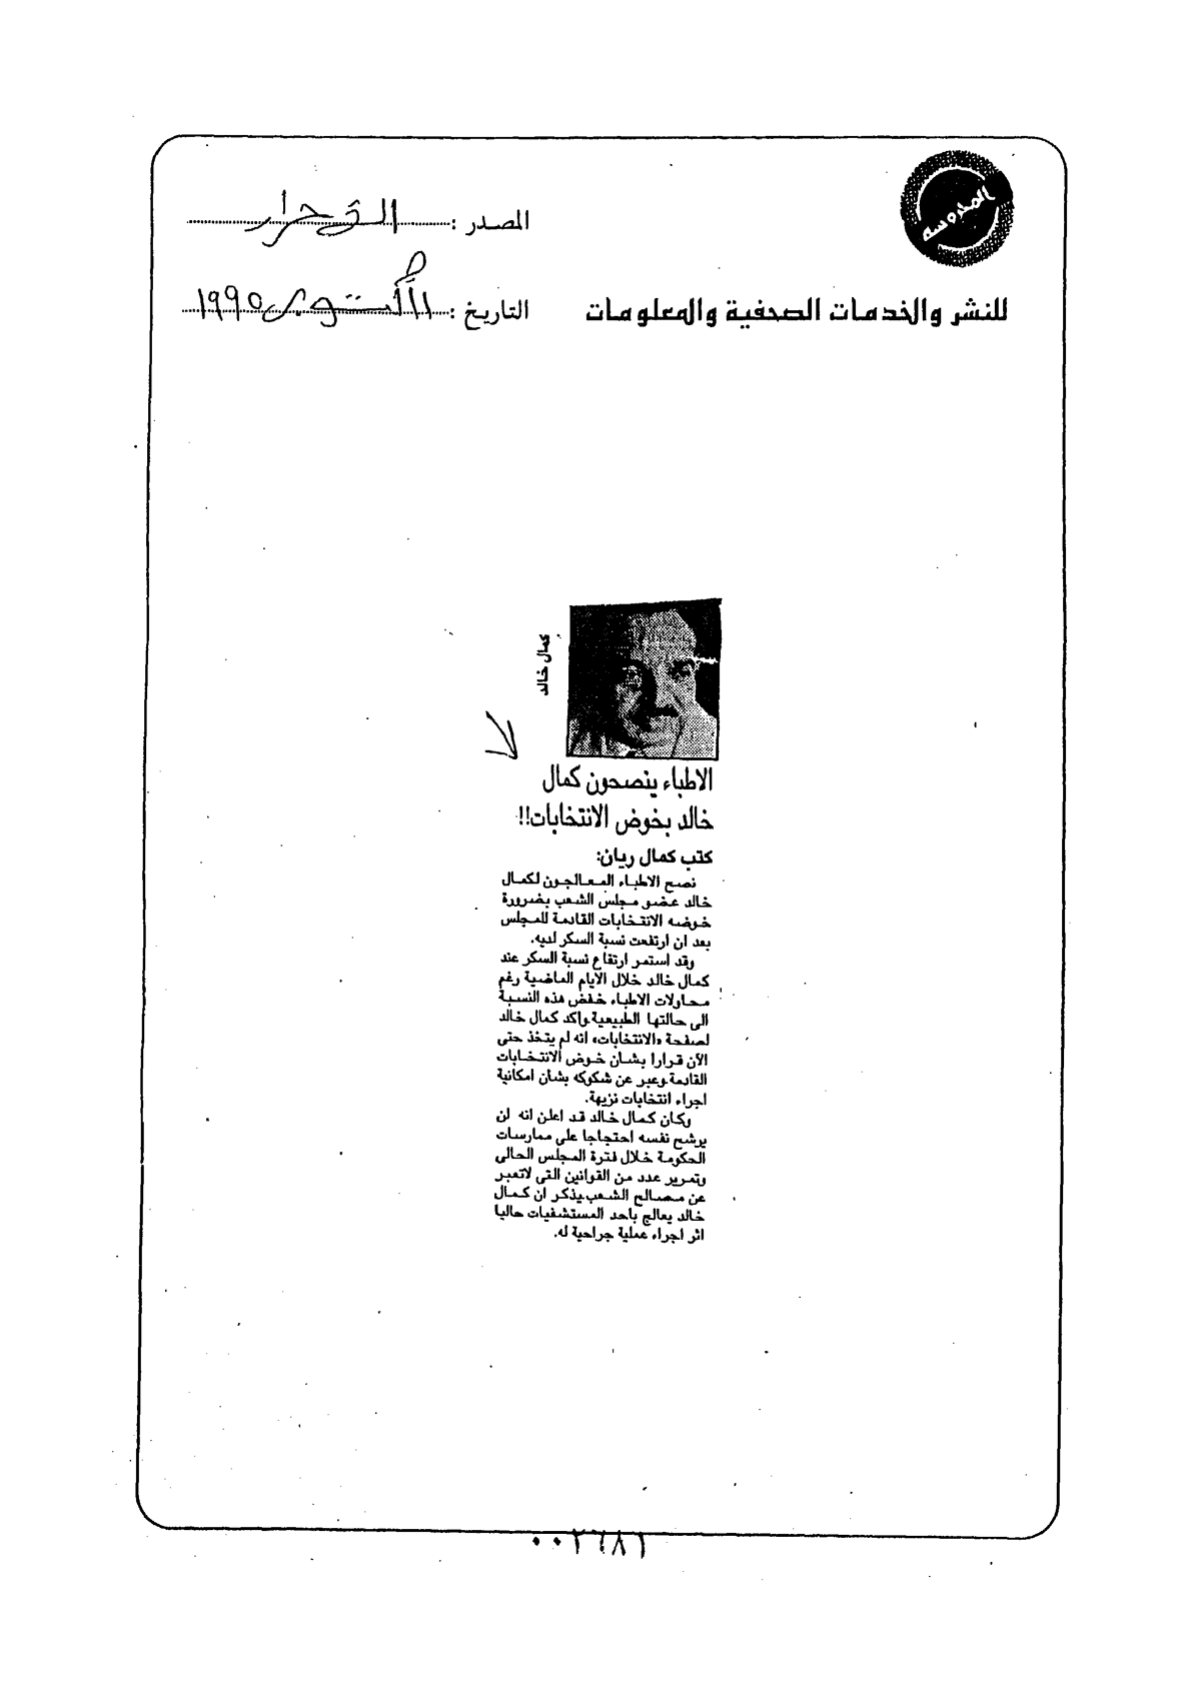 المحروسة
المصدر : الأحرار
للنشر والخدمات الصحفية والمعلومات
التاريخ : أكتوبر ١٩٩٥
كمال خالد
الاطباء ينصحون كمال
خالد بخوض الانتخابات!!
كتب كمال ريان:
نصح الاطباء المعالجون لكمال
خالد عضو مجلس الشعب بضرورة
خوضه الانتخابات القادمة للمجلس
بعد ان ارتفعت نسبة السكر لديه.
وقد استمر ارتفاع نسبة السكر عند
كمال خالد خلال الايام الماضية رغم
محاولات الاطباء خفض هذه النسبة
الى حالتها الطبيعية واكد كمال خالد
لصفحة «الانتخابات» انه لم يتخذ حتى
الآن قرارا بشان خوض الانتخابات
القادمة وعبر عن شكوكه بشان امكانية
اجراء انتخابات نزيهة.
وكان كمال خالد قد اعلن انه لن
يرشح نفسه احتجاجا على ممارسات
الحكومة خلال فترة المجلس الحالى
وتمرير عدد من القوانين التى لاتعبر
عن مصالح الشعب يذكر ان كمال
خالد يعالج باحد المستشفيات حاليا
اثر اجراء عملية جراحية له.
٠٠٢٦٨١